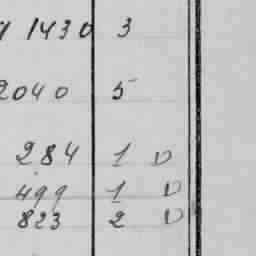 1430 3
2040 5
284 1 D
499 1 D
823 2 D